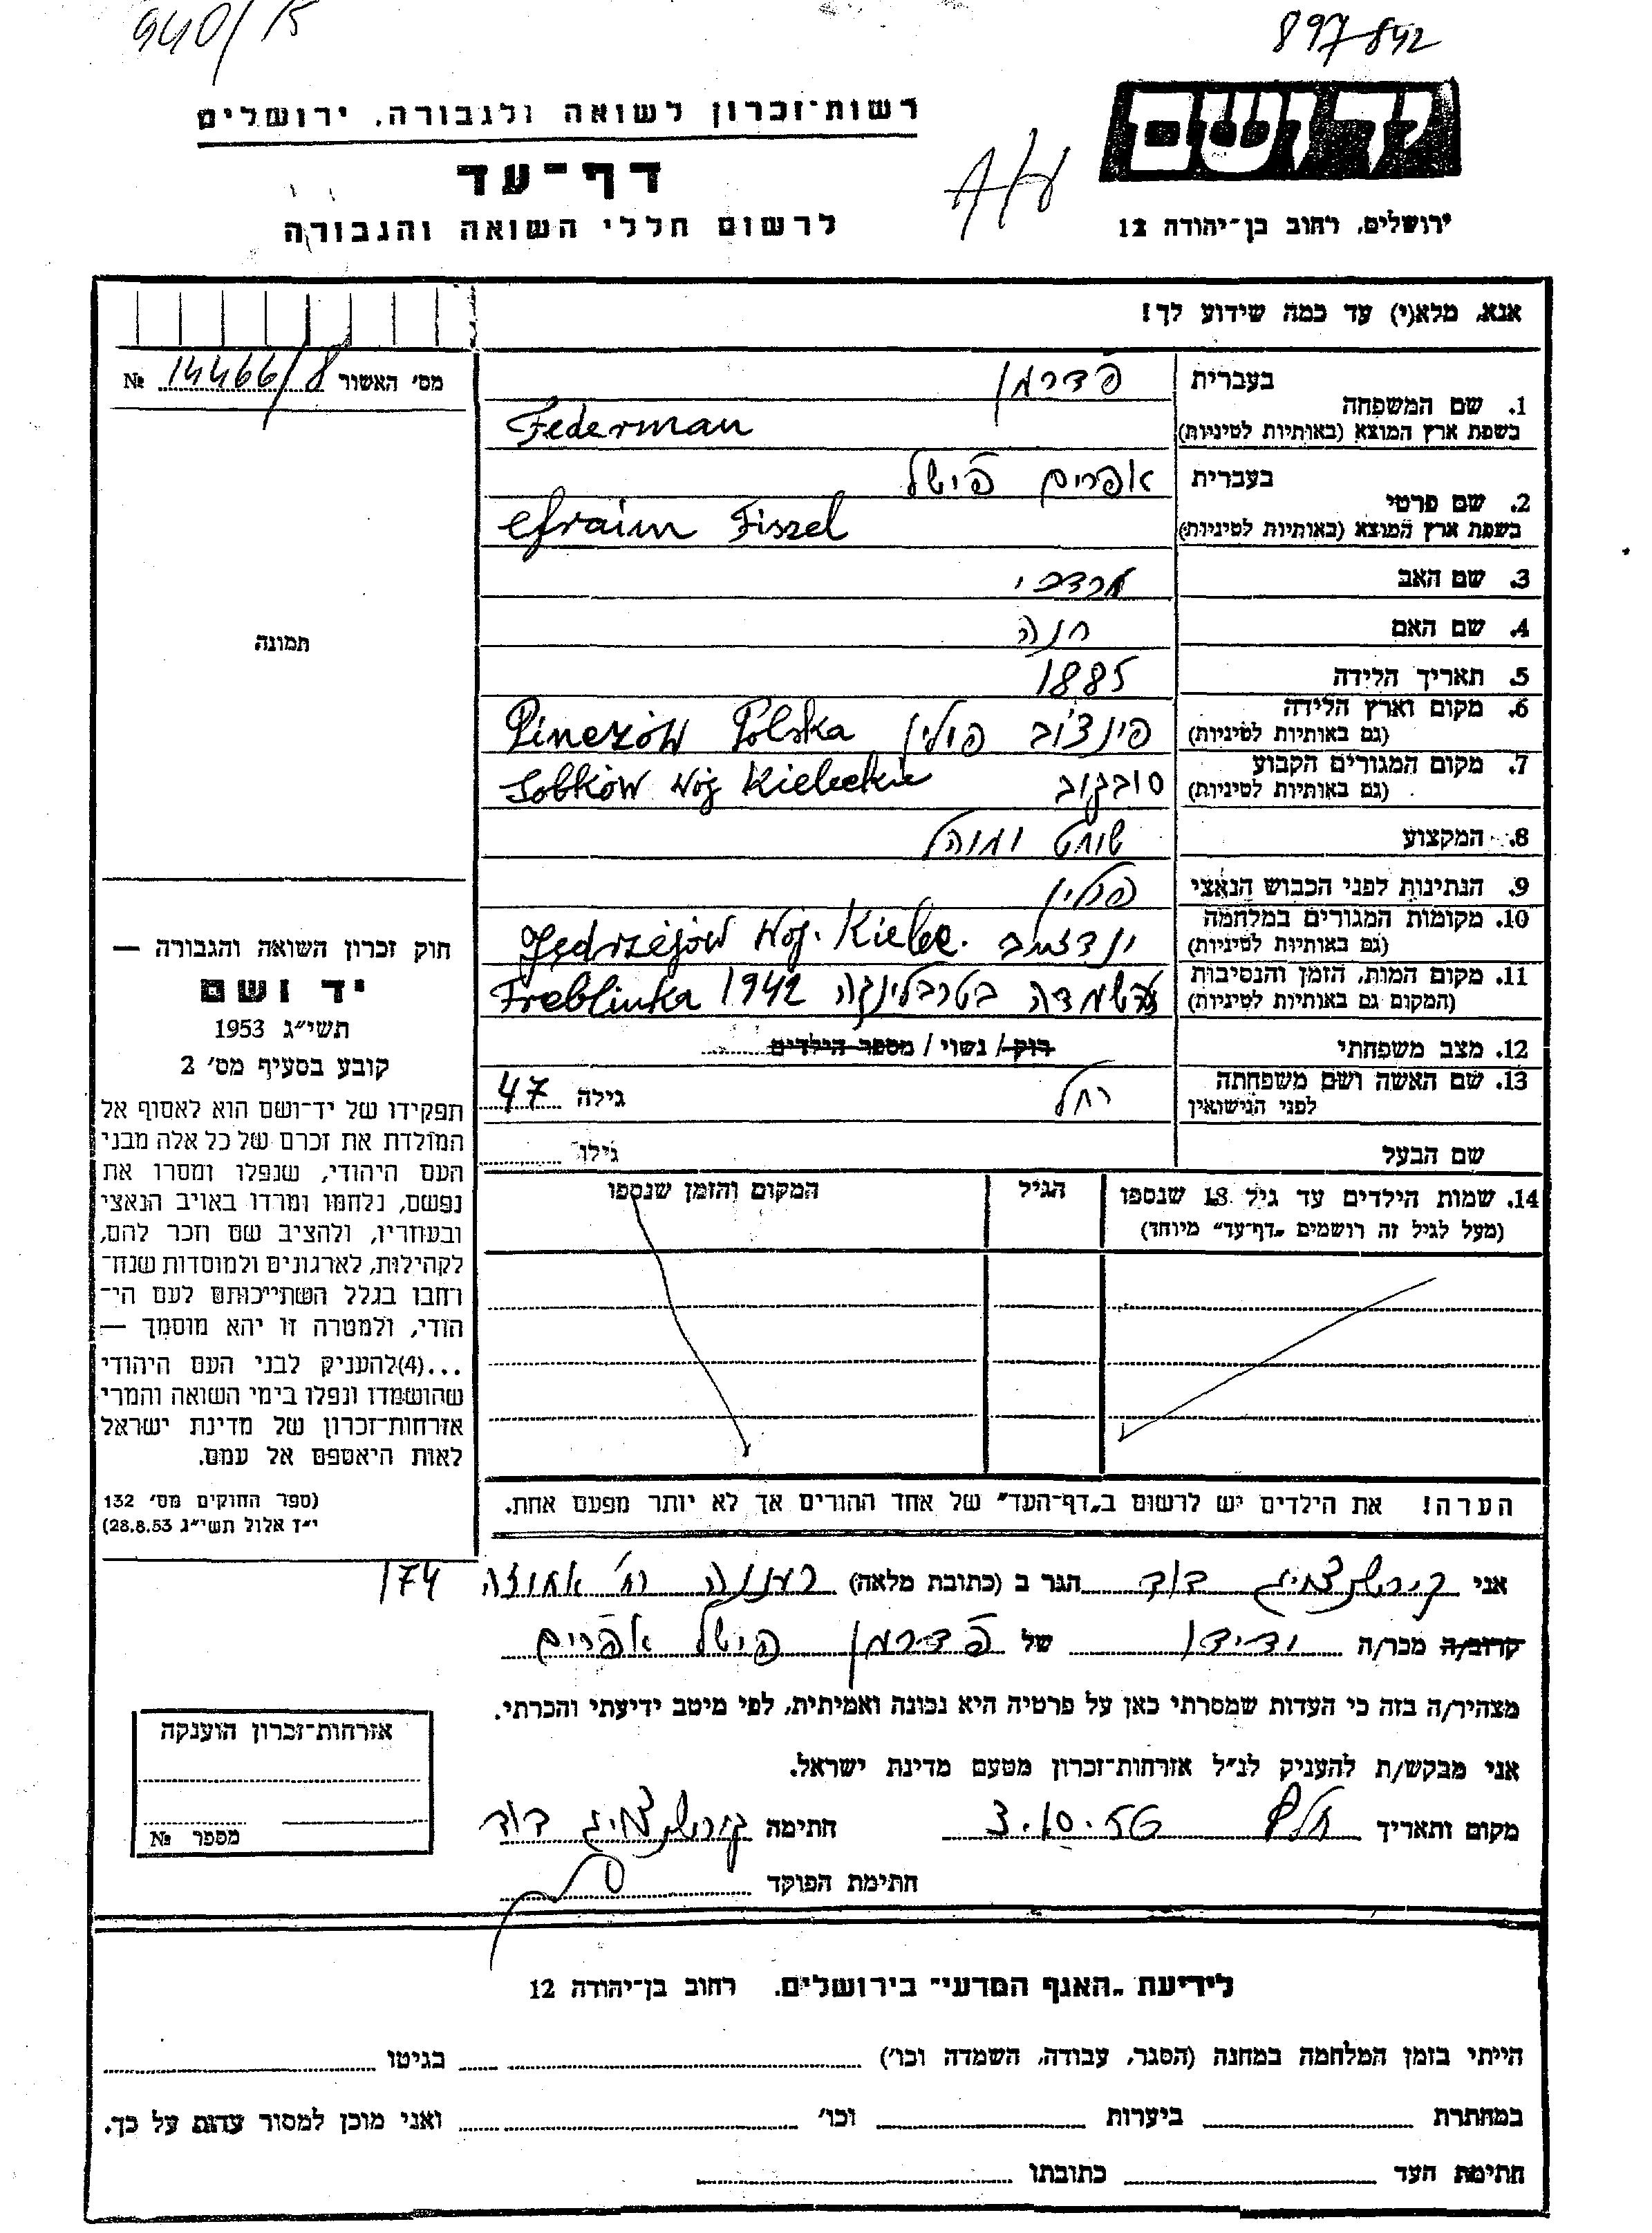 940/15
897842
רשות־זכרון לשואה ולגבורה, ירושלים
יד ושם
דף־עד
לרשום חללי השואה והגבורה
ירושלים, רחוב בן־יהודה 12
אנא, מלא(י) עד כמה שידוע לך!
מס׳ האשור 14466/8 №
בעברית פדרמן
1. שם המשפחה
בשפת ארץ המוצא (באותיות לטיניות) Federman
בעברית אפרים פישל
2. שם פרטי
בשפת ארץ המוצא (באותיות לטיניות) Efraim Fiszel
3. שם האב מרדכי
4. שם האם חנה
תמונה
5. תאריך הלידה 1885
6. מקום וארץ הלידה פינצ'וב פולין Pinczów Polska
(גם באותיות לטיניות)
7. מקום המגורים הקבוע סובקוב Sobków Woj Kieleckie
(גם באותיות לטיניות)
8. המקצוע שוחט ומוהל
9. הנתינות לפני הכבוש הנאצי פולין
10. מקומות המגורים במלחמה Jędrzejów Woj. Kielce.
(גם באותיות לטיניות)
11. מקום המות, הזמן והנסיבות בטרבלינקה 1942 Treblinka
(המקום גם באותיות לטיניות)
12. מצב משפחתי רוק / נשוי / מספר הילדים
13. שם האשה ושם משפחתה רחל גילה 47
לפני הנישואין
שם הבעל גילו
14. שמות הילדים עד גיל 18 שנספו הגיל המקום והזמן שנספו
(מעל לגיל זה רושמים „דף־עד״ מיוחד)
חוק זכרון השואה והגבורה —
יד ושם
תשי״ג 1953
קובע בסעיף מס׳ 2
תפקידו של יד־ושם הוא לאסוף אל
המולדת את זכרם של כל אלה מבני
העם היהודי, שנפלו ומסרו את
נפשם, נלחמו ומרדו באויב הנאצי
ובעוזריו, ולהציב שם וזכר להם,
לקהילות, לארגונים ולמוסדות שנח־
רחבו בגלל השתייכותם לעם הי־
הודי, ולמטרה זו יהא מוסמך —
...(4)להעניק לבני העם היהודי
שהושמדו ונפלו בימי השואה והמרי
אזרחות־זכרון של מדינת ישראל
לאות היאספם אל עמם.
(ספר החוקים מס׳ 132
י״ז אלול תשי״ג 28.8.53)
הערה! את הילדים יש לרשום ב„דף־העד״ של אחד ההורים אך לא יותר מפעם אחת.
אני קירשנצויג דוד הגר ב (כתובת מלאה) רעננה רח׳ אחוזה 174
קרוב/ה מכר/ה ידידו של פדרמן פישל אפרים
מצהיר/ה בזה כי העדות שמסרתי כאן על פרטיה היא נכונה ואמיתית, לפי מיטב ידיעתי והכרתי.
אני מבקש/ת להעניק לנ״ל אזרחות־זכרון מטעם מדינת ישראל.
מקום ותאריך 3.10.56 חתימה קירשנצויג דוד
חתימת הפוקד
אזרחות־זכרון הוענקה
מספר №
לידיעת „האגף המדעי״ בירושלים. רחוב בן־יהודה 12
הייתי בזמן המלחמה במחנה (הסגר, עבודה, השמדה וכו׳) בגיטו
במחתרת ביערות וכו׳ ואני מוכן למסור עדות על כך.
חתימת העד כתובתו